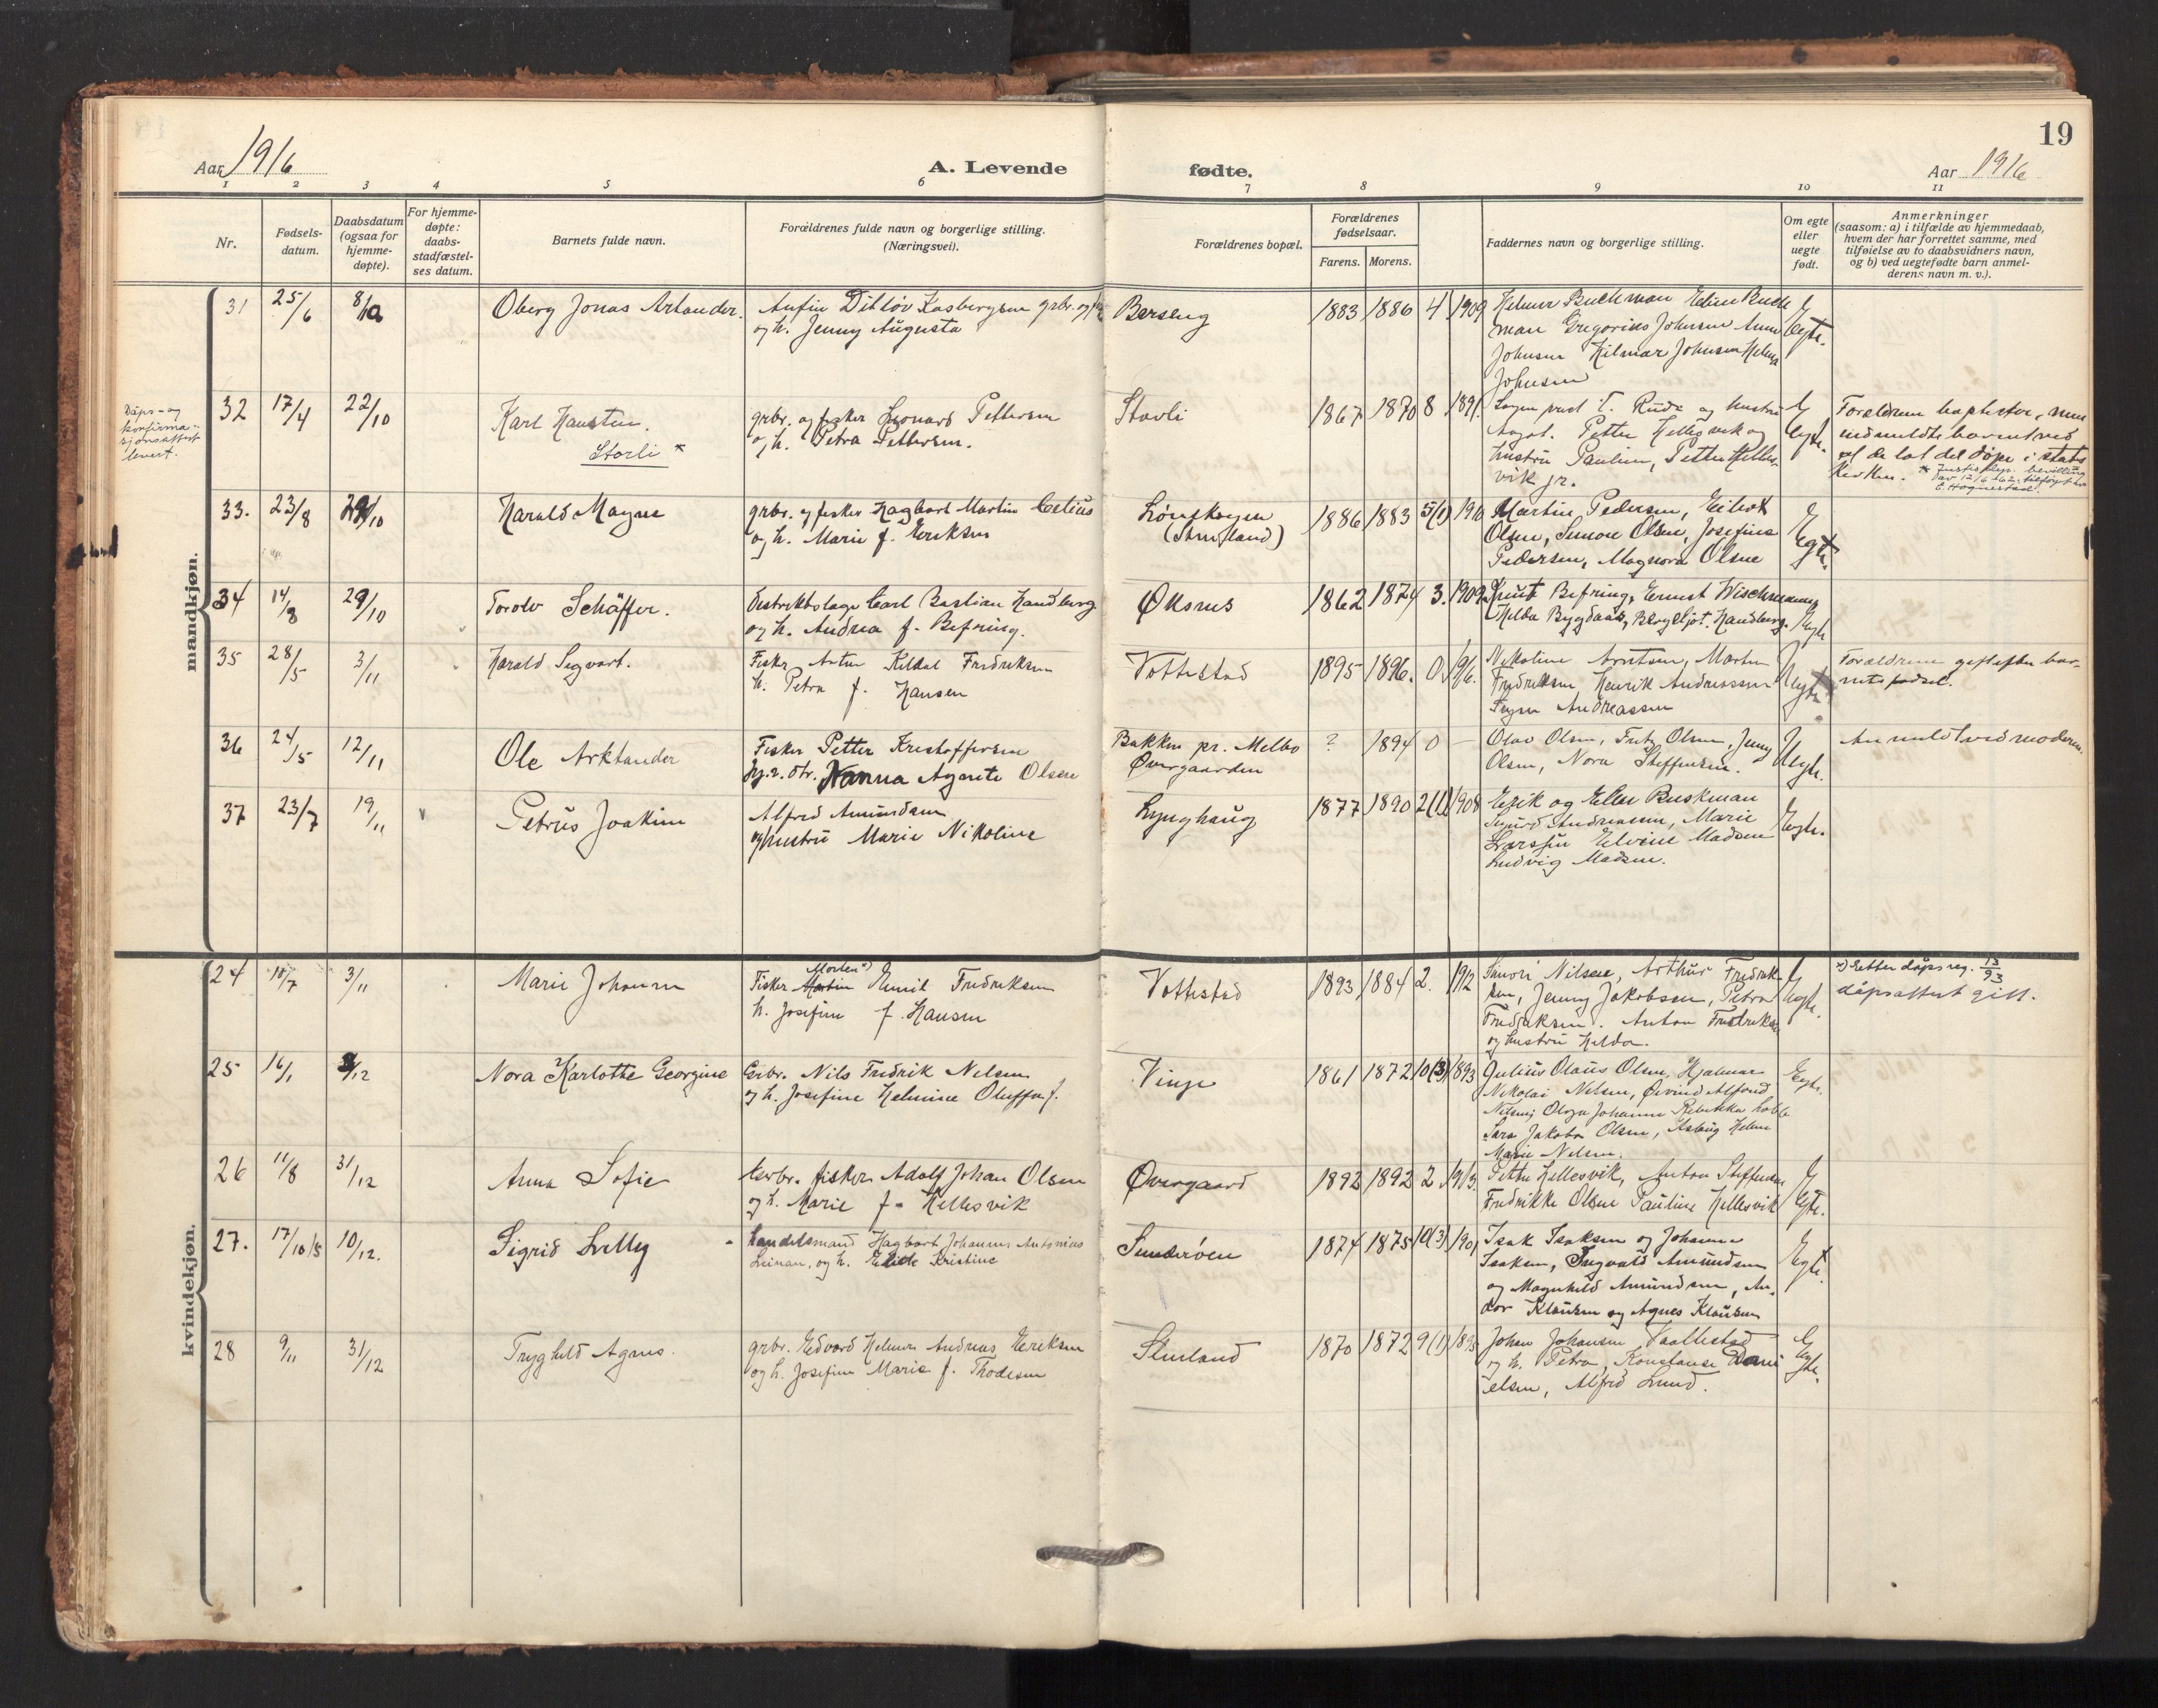 19
Aar 1916
A. Levende fødte.
Aar 1916
1 2 3 4 5 6 7 8 9 10 11
Nr.
Fødsels-
datum.
Daabsdatum
(ogsaa for
hjemme-
døpte).
For hjemme-
døpte:
daabs-
stadfæstel-
ses datum.
Barnets fulde navn.
Forældrenes fulde navn og borgerlige stilling.
(Næringsvei).
Forældrenes bopæl.
Forældrenes
fødselsaar.
Farens. Morens.
Faddernes navn og borgerlige stilling.
Om egte
eller
uegte
født.
Anmerkninger
(saasom: a) i tilfælde av hjemmedaab,
hvem der har forrettet samme, med
tilføielse av to daabsvidners navn,
og b) ved uegtefødte barn anmel-
derens navn m. v.).
mandkjøn.
31 25/6 8/10 Oberg Jonas Arktander.
og h. Jenny Augusta
Barseng 1883 1886 4 1909
Helmer Buckman Eline Buck
man Gregorius Johnsen Anna
Johnsen Hilmar Johnsen Helma
Johnsen
Egte.
Dåps- og
konfirma-
sjonsattest
levert.
32 17/4 22/10 Karl Hansten.
Storli *
grbr. og fisker Leonard Pettersen
og h. Petra Pettersen.
Stovli 1867 1870 8 1891
og hustru
Petter Hellesvik og
hustru Pauline, Petter Helles-
vik jr.
Egte.
Forældrene baptister, men
indmeldte barnet ved
at de lot det døpe i stats
kirken. * Justisdep. bevilling
av 12/6-62, tilføyet her
E. Hognestad.
33. 23/8 29/10 Harald Magne
grbr. og fisker Hagbart Martin Celius
og h. Marie f. Eriksen
Lønskogen
(Strusland)
1886 1883 5(1) 1910
Martin Pedersen, Eilert
Olsen, Simon Olsen, Josefine
Pedersen, Magnora Olsen
Egte.
34 14/8 29/10 Torolv Schäffer.
Distriktslæge Carl Bastian Handberg
og h. Andrea f. Befring.
Øksnes 1862 1874 3. 1909
Knut Befring, Ernst Wischmann
Hilda Bygdaas, Bergljot Handberg.
Egte
35 28/5 3/11 Harald Sigvart.
Fisker Anton Kildal Fredriksen
h. Petra f. Hansen
Vottestad 1895 1896. 0 1916.
Nikoline Arntsen, Morten
Fredriksen Henrik Andreassen
Andreassen
Uegte
Forældrene gift efter bar-
nets fødsel.
36 24/5 12/11 Ole Arktander
Fisker Petter Kristoffersen
Nanna Agnete Olsen
Bakken pr. Melbo
Øvergaarden
? 1894 0 —
Olav Olsen, Fritz Olsen, Jenny
Olsen, Nora Steffensen.
Uegte.
Anmeldt ved moderen.
37 23/7 19/11 v Petrus Joakim
Alfred Amundsen
og hustru Marie Nikoline
Lynghaug 1877 1890 2(1) 1908
Erik og Elen Buskman
Sigurd Andreassen, Marie
Larssen Elvine Madsen
Ludvig Madsen.
Egte.
kvindekjøn.
24 10/7 3/11 Marie Johanne
Morten x)
Fisker Martin Emil Fredriksen
h. Josefine f. Hansen
Vottestad 1893 1884 2. 1912
Simon Nilsen, Arthur Fredrik-
sen, Jenny Jakobsen, Petra
Fredriksen. Anton Fredriksen
og hustru Helda.
Egte.
x) Etter dåpsreg. 13/93
dåpsattest gitt.
25 16/1 3/12 Nora Karlotte Georgine
Grbr. Nils Fredrik Nilsen
og h. Josefine Helmine Oluffa f.
Vinje 1861 1872 10(3) 1893
Julius Olaus Olsen, Hjalmar
Nikolai Nilsen, Øivind Alfred
Nilsen, Olga Johanne Rebekka
Sara Jakobe Olsen, Aslaug Helene
Marie Nilsen.
Egte.
26 11/8 31/12 Anna Sofie
Grbr. fisker Adolf Johan Olsen
og h. Marie f. Hellesvik
Øvergaard 1892 1892 2 1913.
Petter Hellesvik, Anton Steffensen
Fredrikke Olsen Pauline Hellesvik
Egte.
27. 17/10 15 10/12. Sigrid Lilly
Handelsmand Hagbart Johannes Antonius
Leinan, og h. Elide Kristine
Sunderøen 1874 1875 10(3) 1901
Isak Isaksen og Johanna
Isaksen, Ingvald Amundsen
og Magnhild Amundsen, An-
dor Klausen og Agnes Klausen
Egte.
28 9/11 31/12 Tryghild Agnes.
grbr. Edvard Helmer Andreas Eriksen
og h. Josefine Marie f. Thodesen
Strusland 1870 1872 9(1) 1893
Johan Johansen Vaattestad
og h. Petra, Konstanse Dani
elsen, Alfred Lund.
Egte.